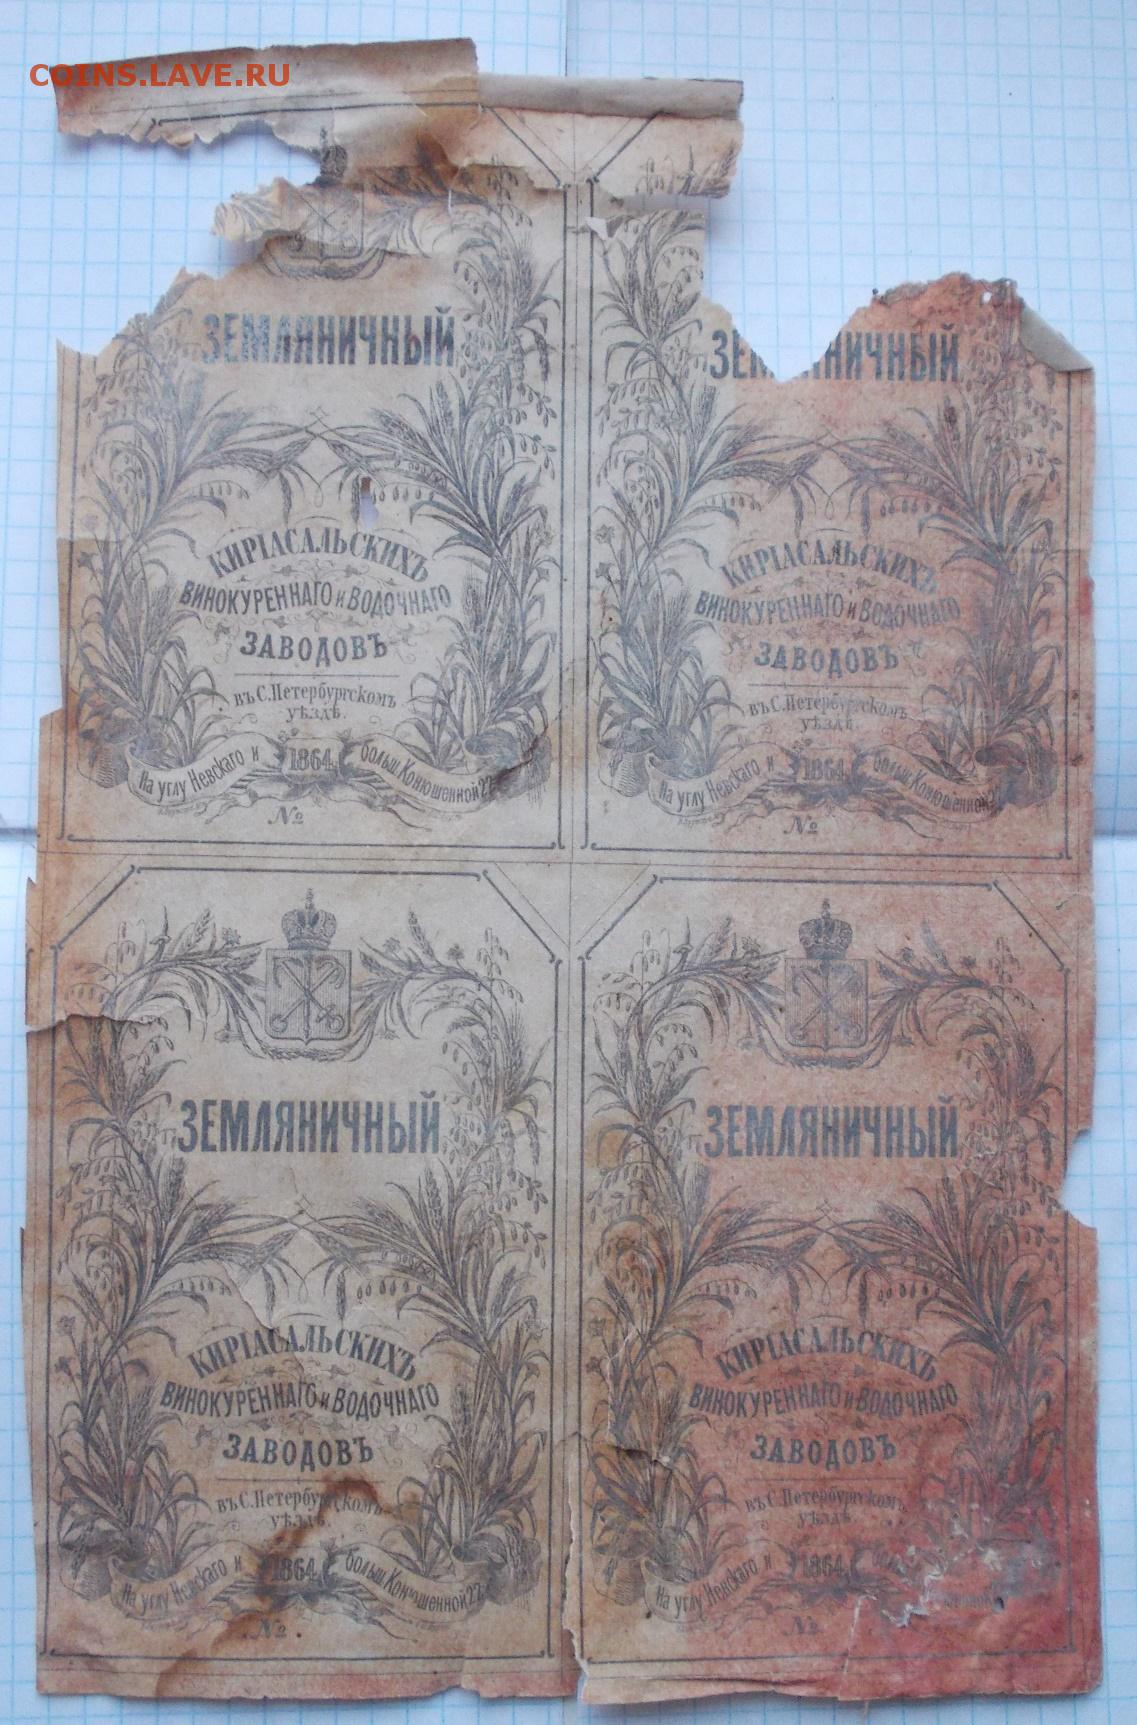 COINS.LAVE.RU
ЗЕМЛЯНИЧНЫЙ
КИРІАСАЛЬСКИХЪ
ВИНОКУРЕННАГО и ВОДОЧНАГО
ЗАВОДОВЪ
въ С. Петербургскомъ
уѣздѣ.
На углу Невскаго и 1864 больш. Конюшенной 22
№
ЗЕ НИЧНЫЙ
КИРІАСАЛЬСКИХЪ
ВИНОКУРЕННАГО и ВОДОЧНАГО
ЗАВОДОВЪ
въ С. Петербургскомъ
уѣздѣ.
На углу Невскаго и 1864 больш. Конюшенной 22
№
ЗЕМЛЯНИЧНЫЙ
КИРІАСАЛЬСКИХЪ
ВИНОКУРЕННАГО и ВОДОЧНАГО
ЗАВОДОВЪ
въ С. Петербургскомъ
уѣздѣ.
На углу Невскаго и 1864 больш. Конюшенной 22
№
ЗЕМЛЯНИЧНЫЙ
КИРІАСАЛЬСКИХЪ
ВИНОКУРЕННАГО и ВОДОЧНАГО
ЗАВОДОВЪ
въ С. Петербургскомъ
уѣздѣ.
На углу Невскаго и 1864
№